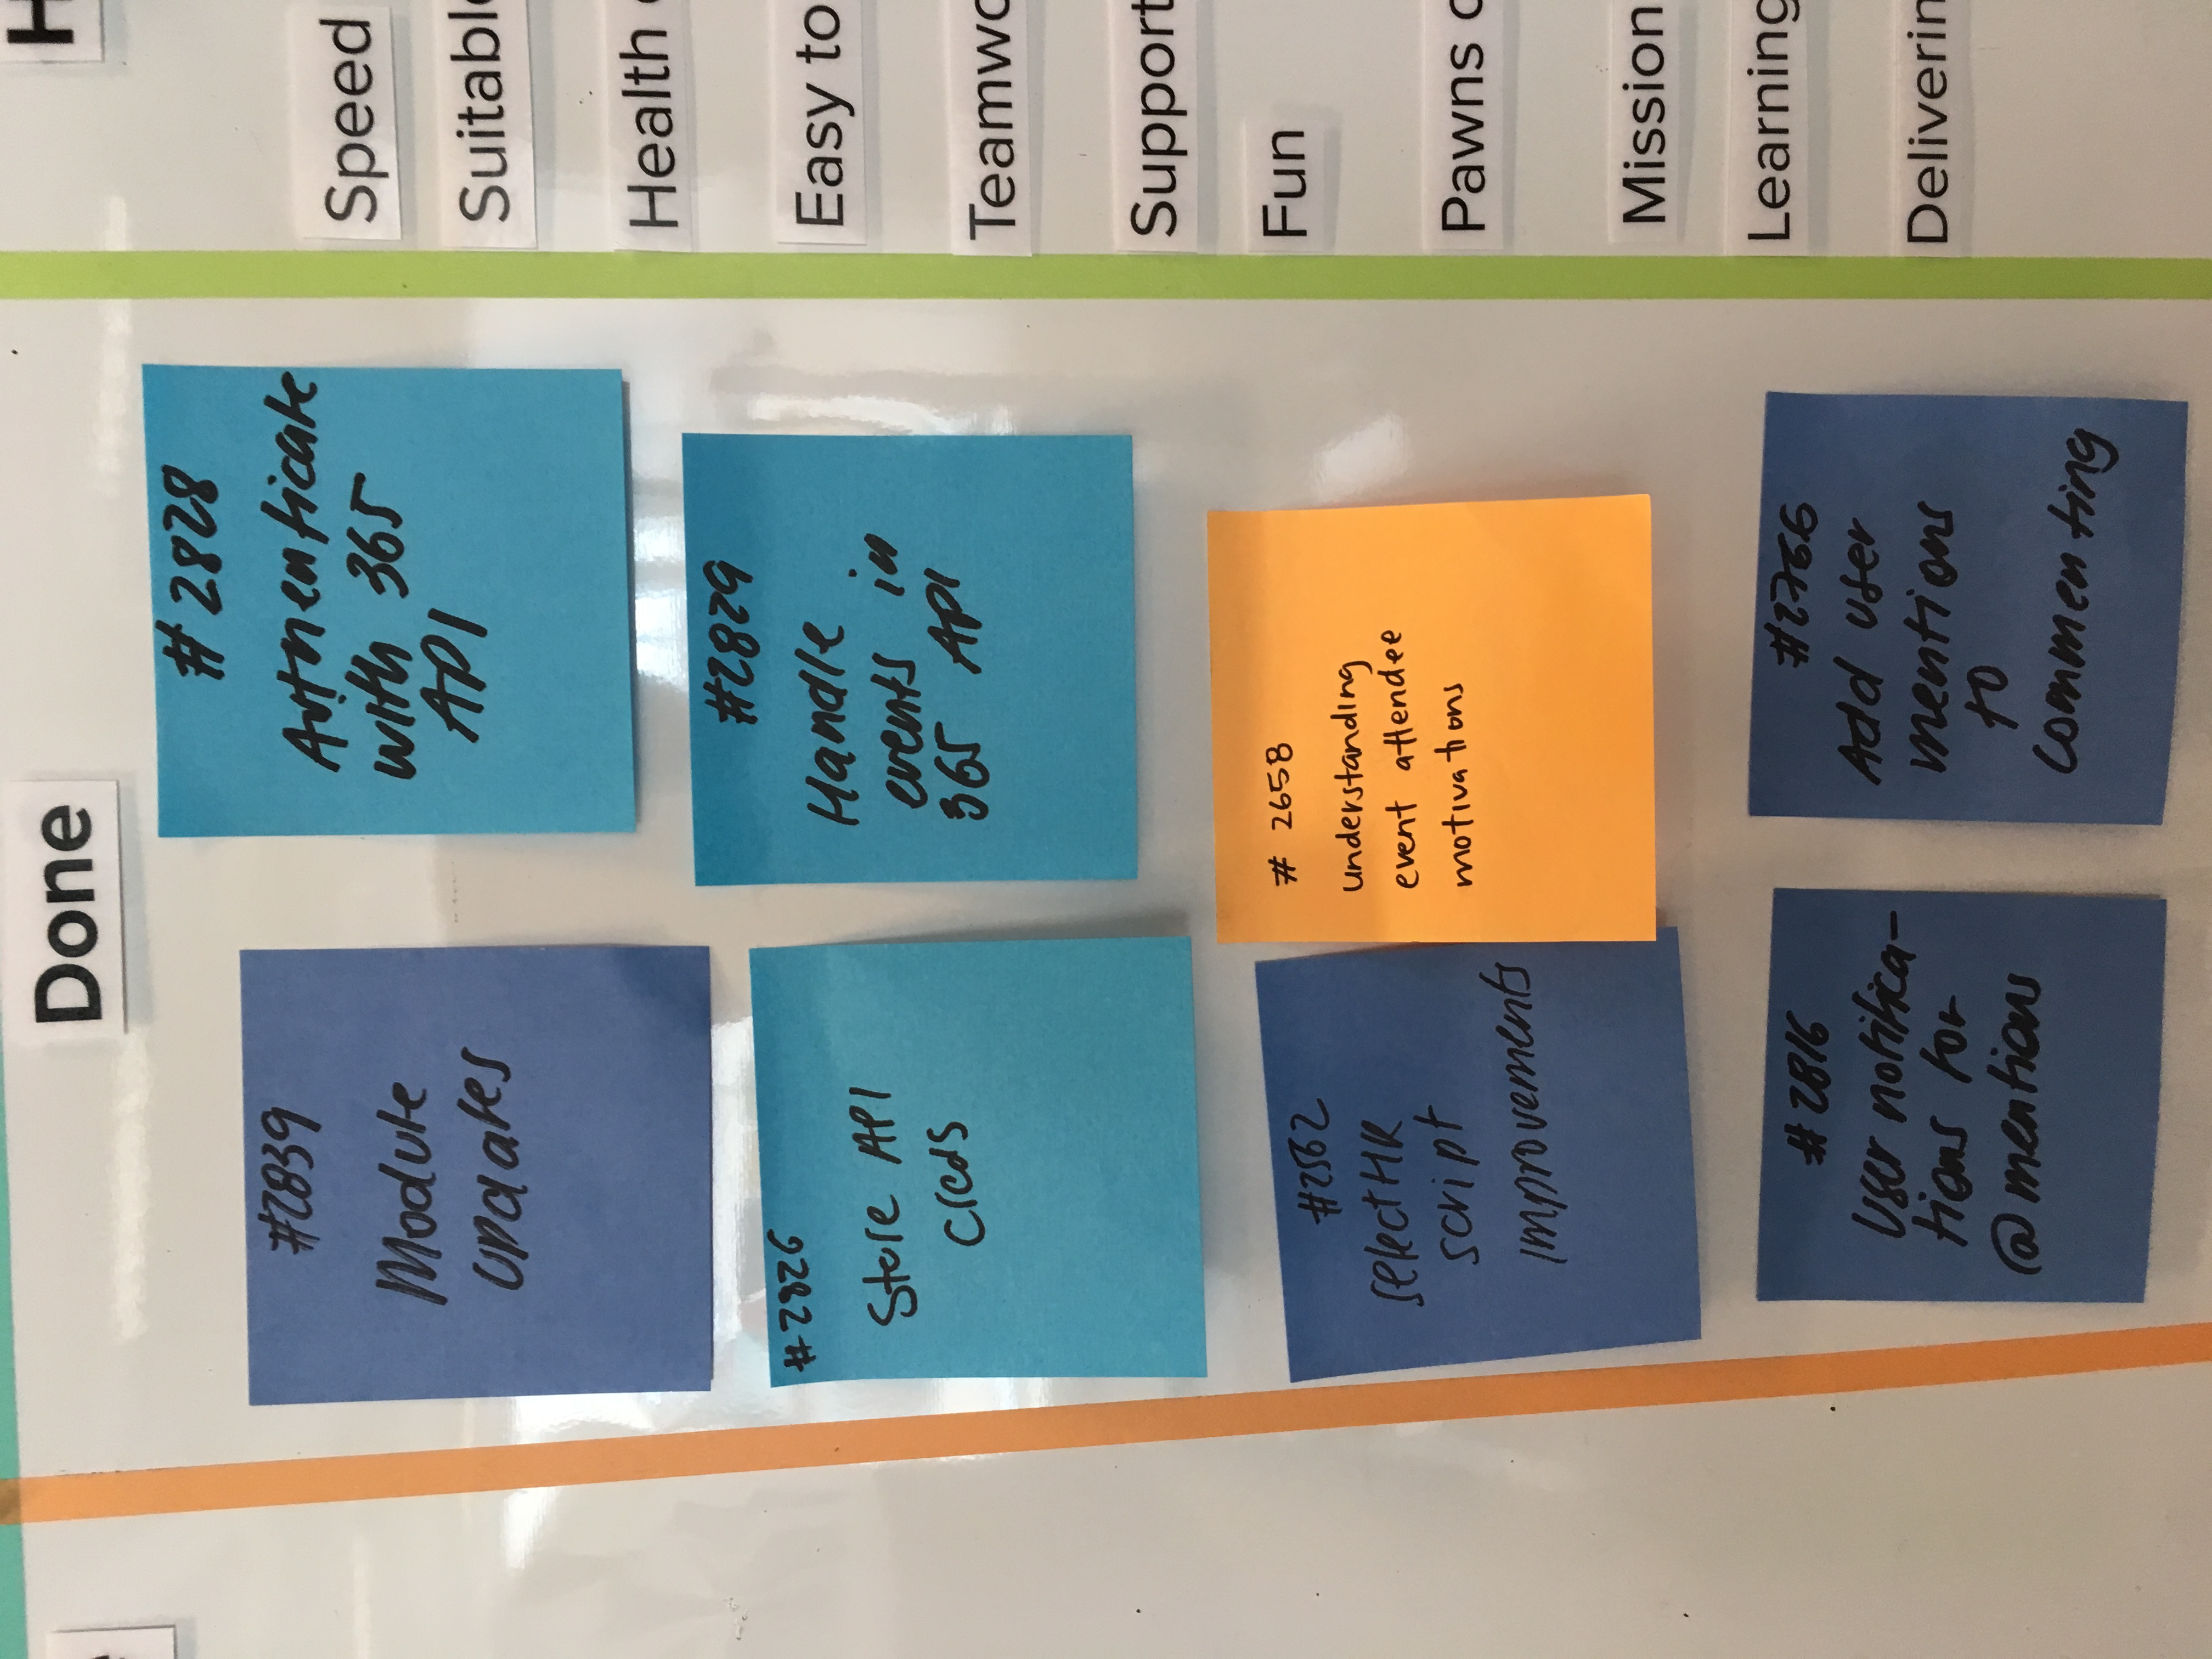 Done
#2839
Module
updates
#2828
Authenticate
with 365
API
#2826
Store API
creds
#2829
Handle
events in
365 API
#2562
selectHR
script
improvements
# 2658
understanding
event attendee
motivations
#2816
User notifica-
tions for
@mentions
#2766
Add user
mentions
to
commenting
H
Speed
Suitable
Health
Easy to
Teamwo
Support
Fun
Pawns o
Mission
Learning
Deliverin